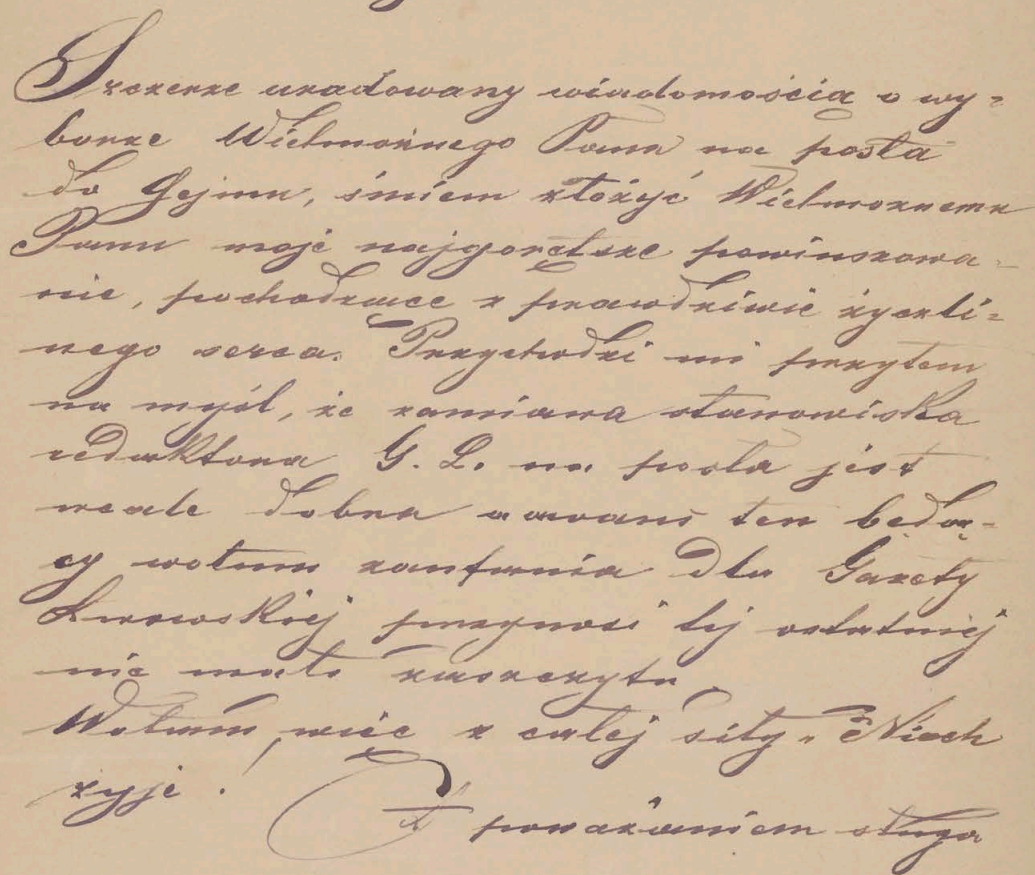 Szczerze uradowany wiadomością o wy=
borze Wielmożnego Pana na posła
do Sejmu, śmiem złożyć Wielmożnemu
Panu moje najgorętsze powinszowa-
nie, pochodzące z prawdziwie życzli=
nego serca. Przychodzi mi przytem
na myśl, że zamiana stanowiska
redaktora G. L. na posła jest
wcale dobra a awans ten będą-
cy wotum zaufania dla Gazety
Lwowskiej przynosi tej ostatniej
nie mało zaszczytu.
Wołam więc z całej siły „Niech
żyje!
Z poważaniem sługa